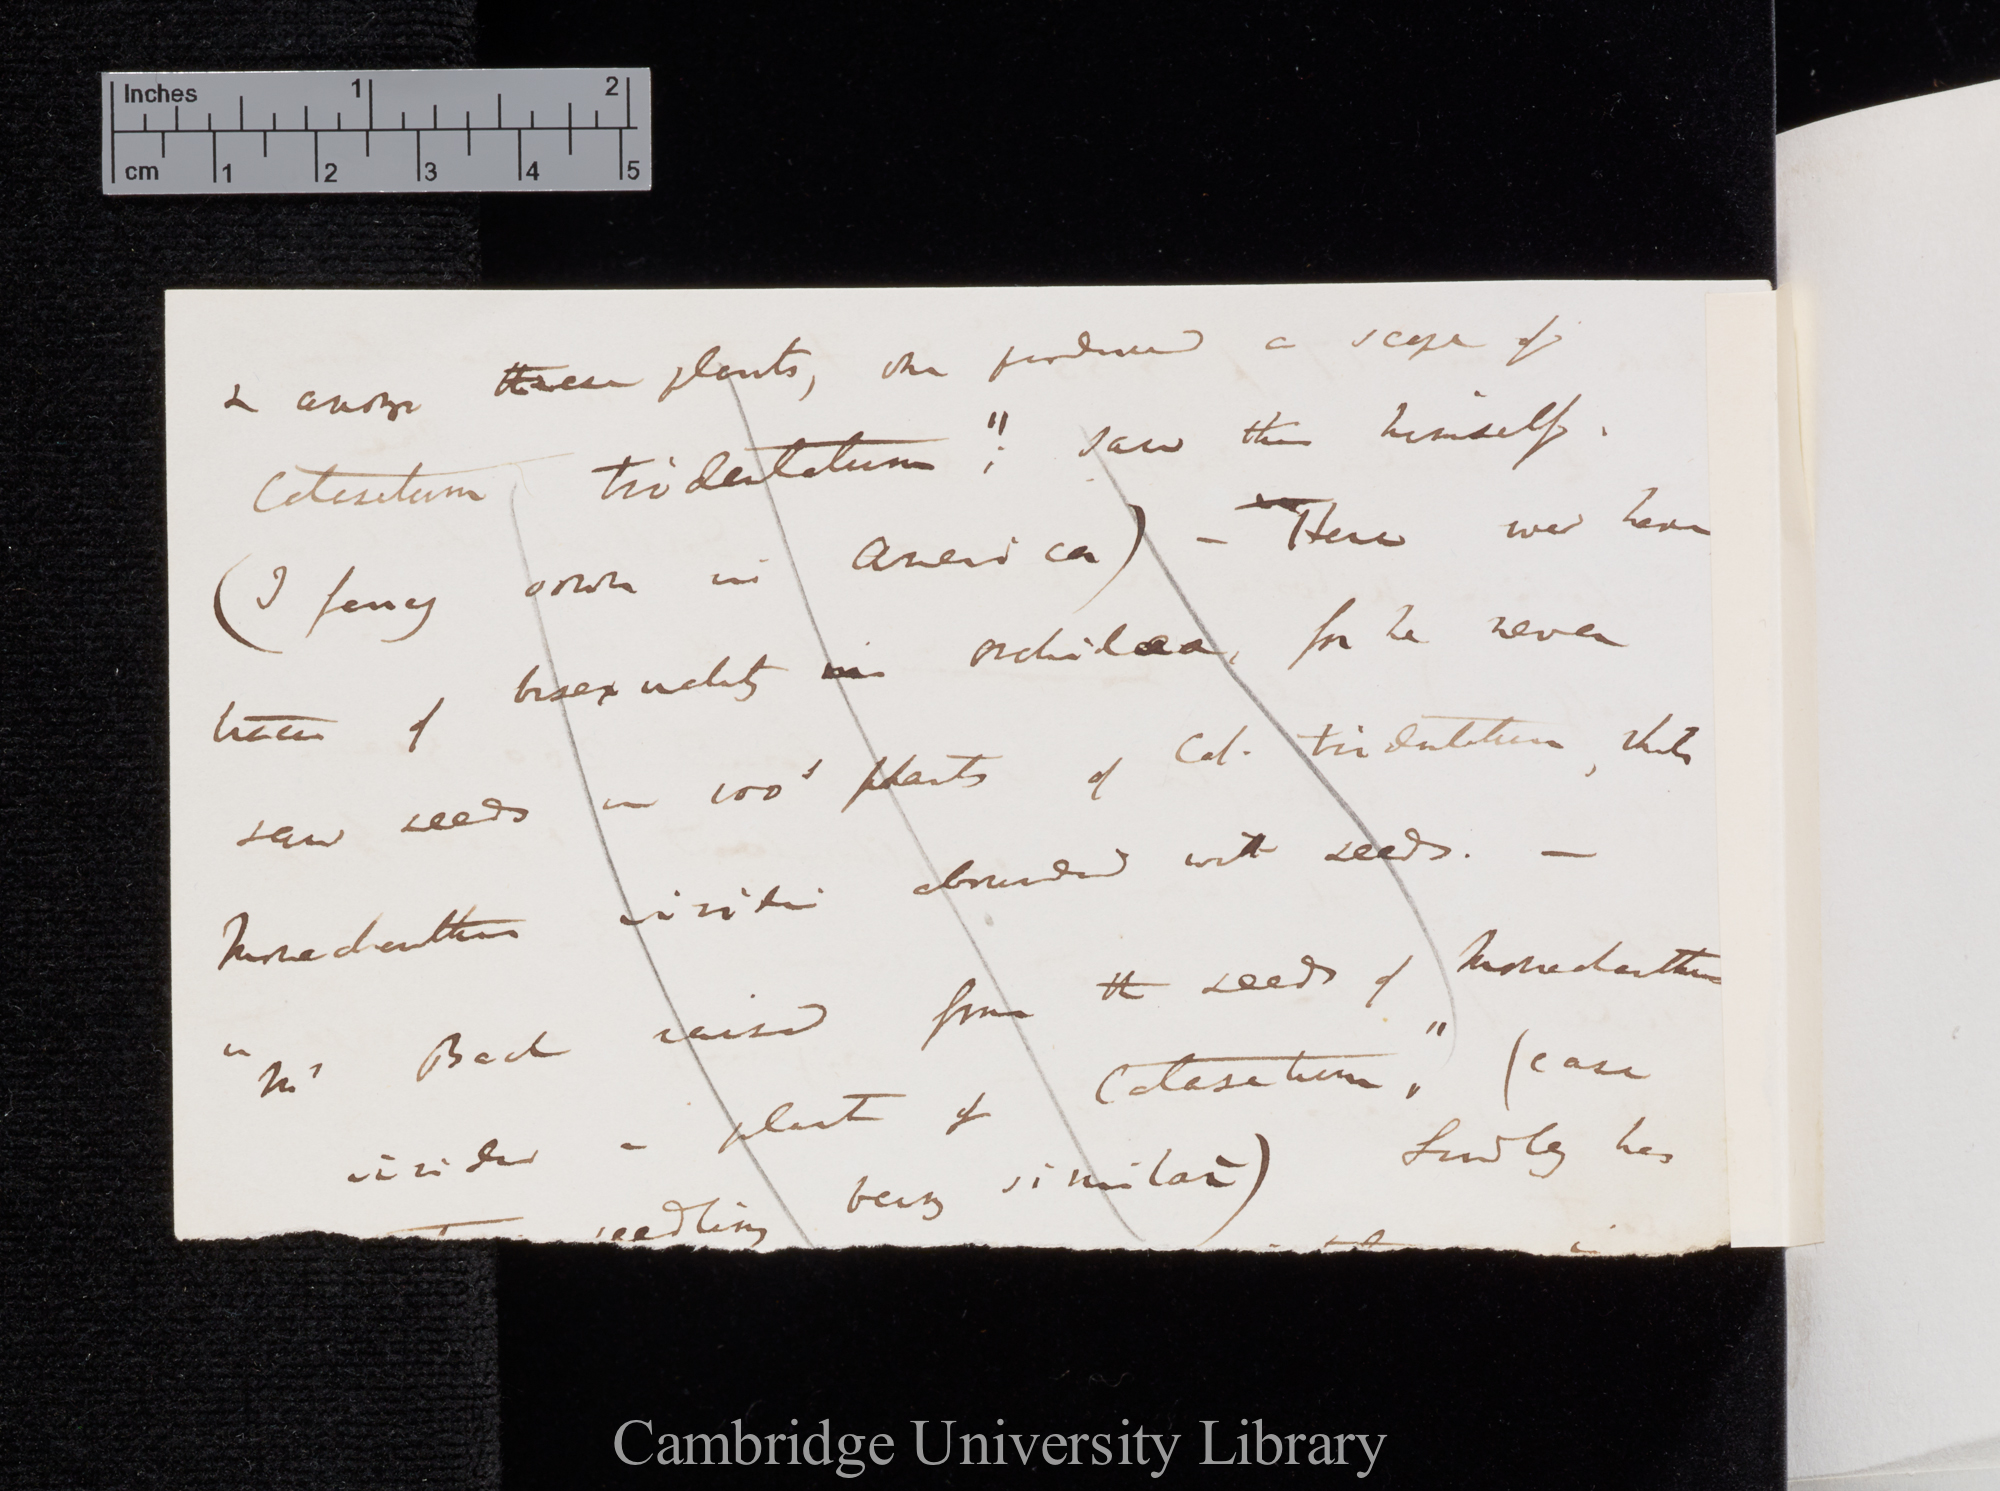 Inches 1 2
cm 1 2 3 4 5
& among these plants, one produced a scape of
Catasetum tridentatum"; saw this himself.
(I fancy in America) — Here we have
traces of bisexuality in orchideæ, for he never
saw seeds in 100s plants of Cat. tridentatum, whilst
Monachanthus viridis abounded with seeds. —
"Mr Bach raised from the seeds of Monachanthus
viridis a plant of Catasetum," (case
seedling being similar) Lindley has
Cambridge University Library